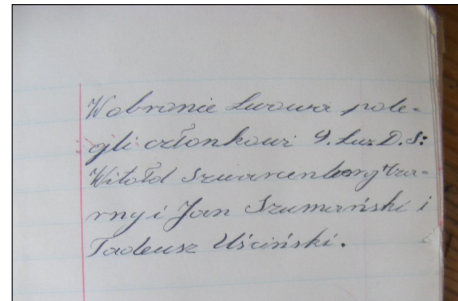 W obronie Lwowa pole-
gli członkowi 9. Lw. D. S:
Witold Szwarcenberg Cza-
rny i Jan Szumański i
Tadeusz Uściński.